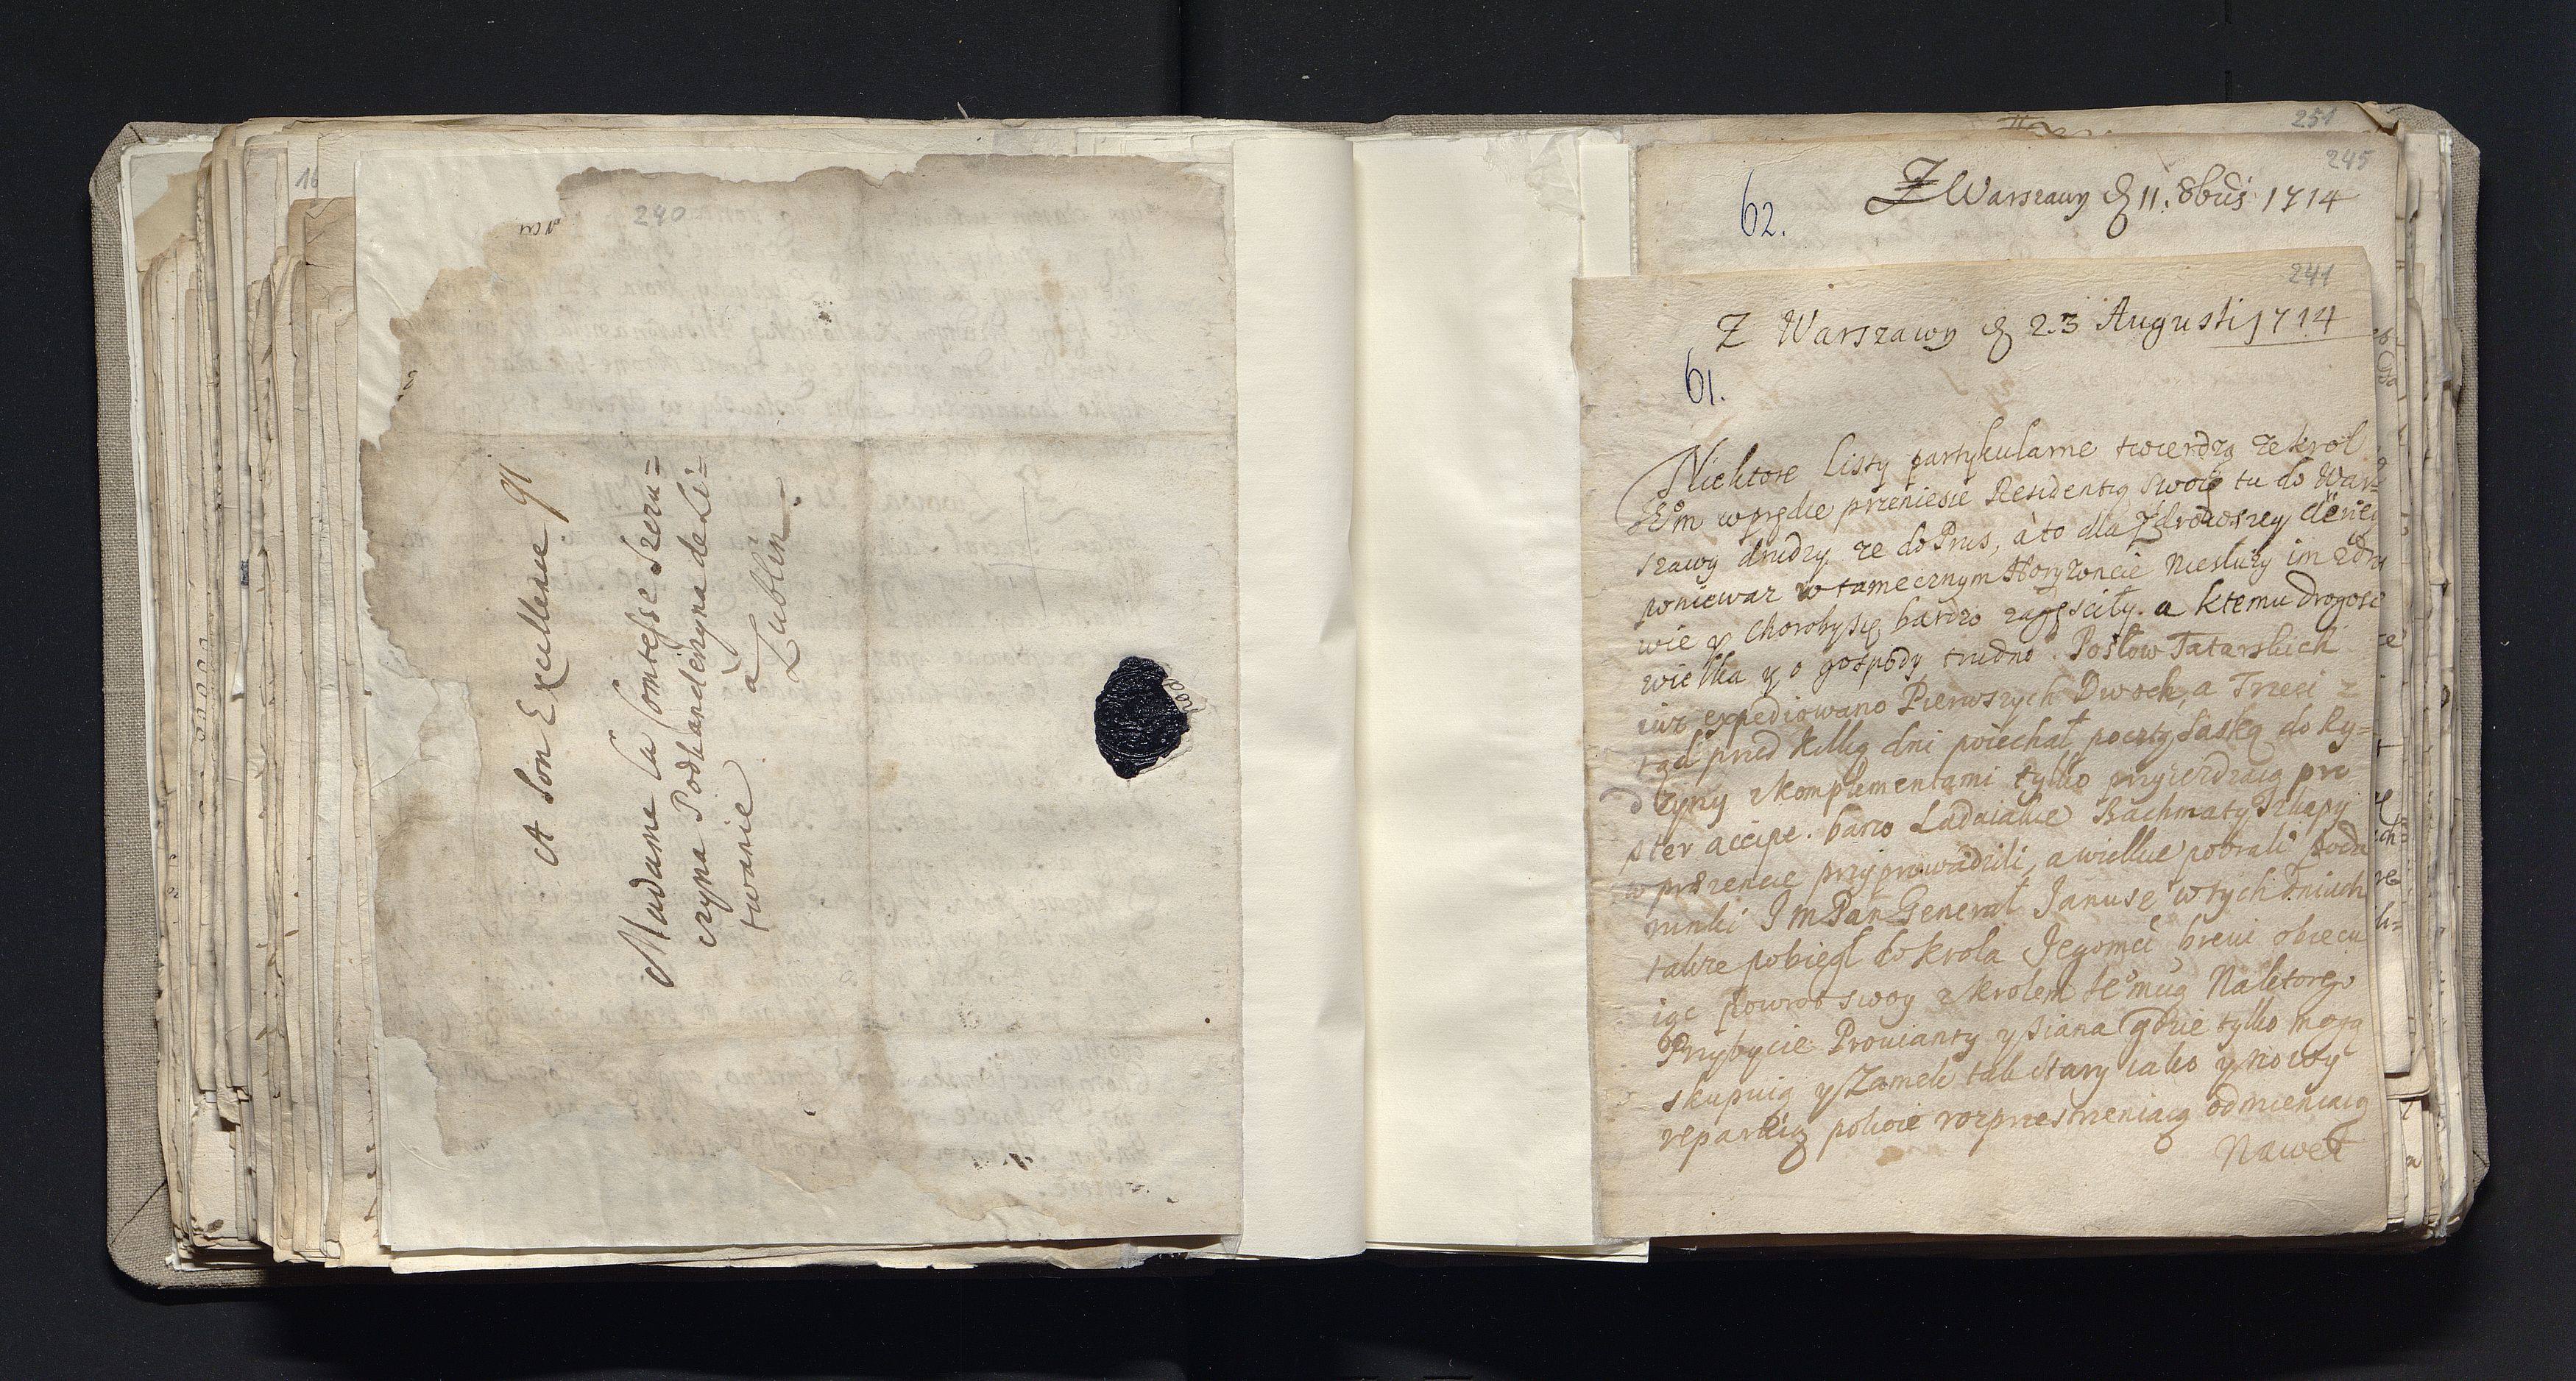 240
A Son Excellence
Madame la Comtesse Szem=
czyna Podskandcrzyna de Li=
twanie
à
Lublin.
251
245
62.
Z Warszawy d 11. 8bris 1714
241
Z Warszawy d 23 Augusti 1714
61.
Niektore Listy partykularne twierdzą ze krol
JEm wprędce przeniesie Residentią swoię tu do War=
szawy drudzy ze do Prus, a to dla zdrowszey
poniewaz w tamecznym Horyzoncie nie służy im zdro
wie y choroby się bardzo zagęsciły. a ktemu drogosc
wielka y o gospody trudno. Posłow Tatarskich
iuz expediowano Pierwszych Dwoch, a Trzeci z
tąd przed kilką dni poiechał pocztą Saską do Ry=
dzyny z komplementami tylko przyiezdzaią pro
pter accipe. barzo Ladaiakie Bachmaty Szkapy
w prezencie przyprowadzili, a wielkie pobrali poda
runki JmPan General Janusz w tych dniach
takze pobiegł do krola Jegomci brevi obiecu
iąc powrot swoy z krolem Na ktorego
Przybycie Prowianty y siana gdzie tylko mogą
skupuią y Zamek tak stary iako y nowy
reparuią pokoie rozprzestrzeniaią odmieniaią
Nawet